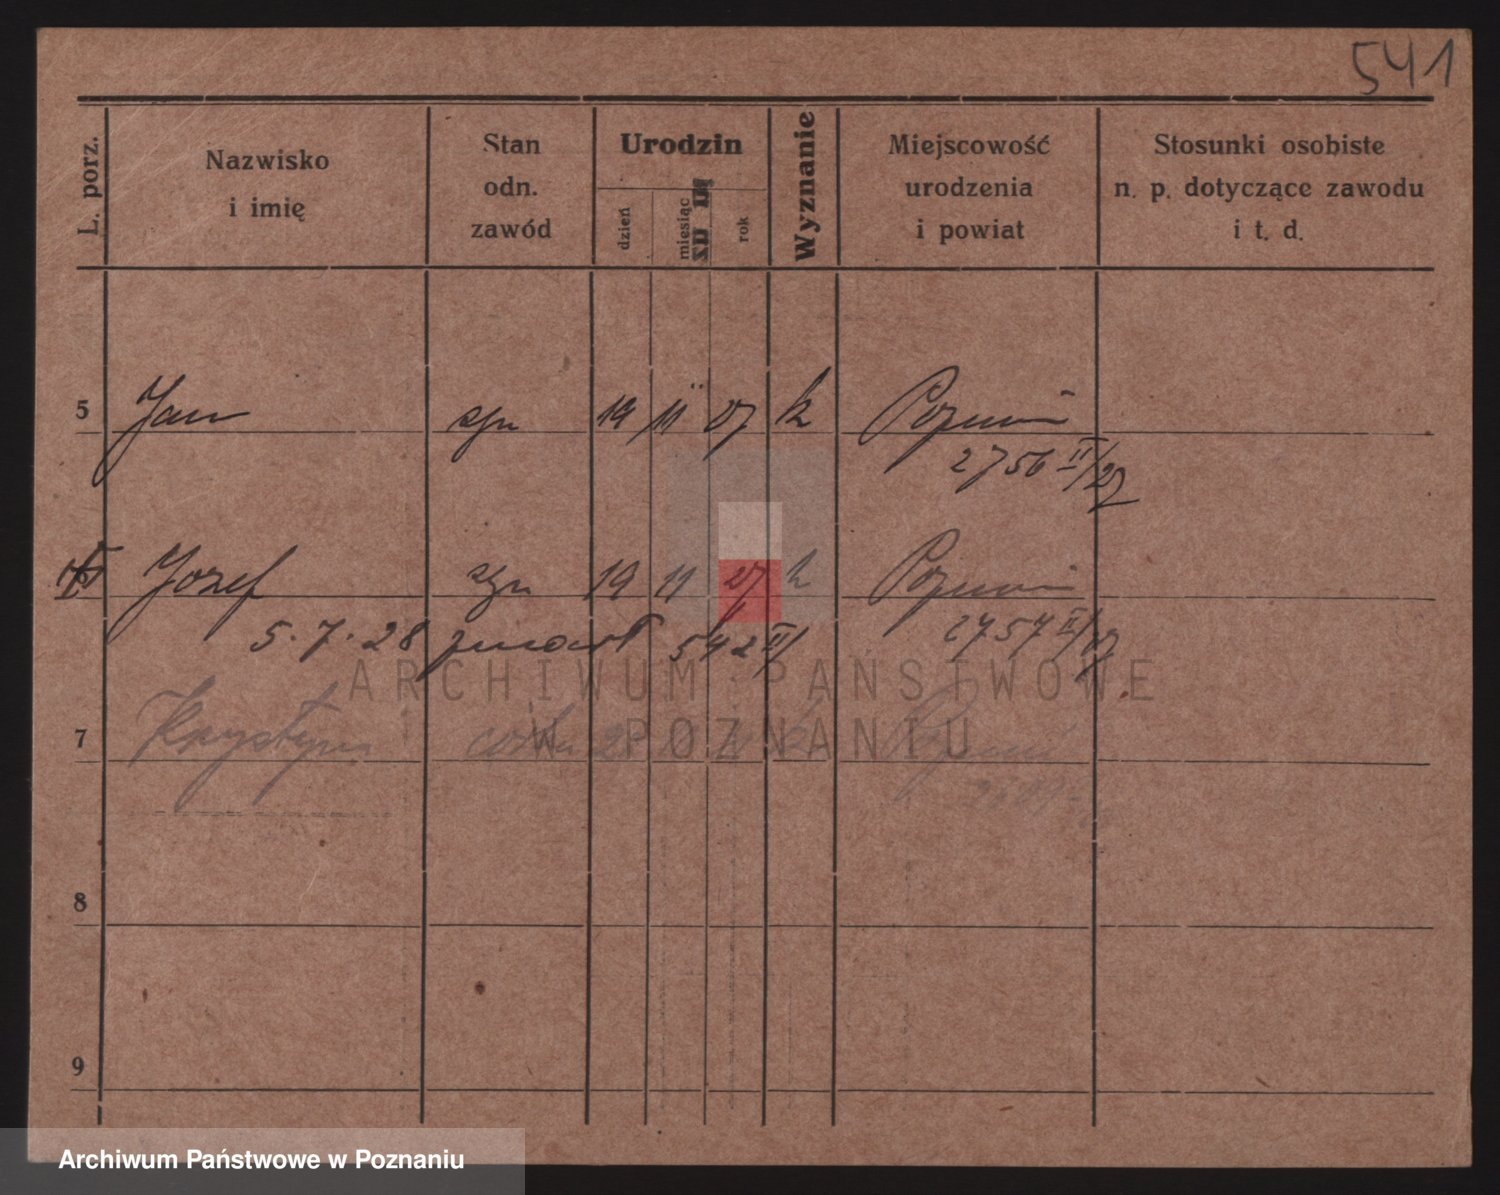 541
L. porz.
Nazwisko
i imię
Stan
odn.
zawód
Urodzin
dzień
miesiąc
rok
Wyznanie
Miejscowość
urodzenia
i powiat
Stosunki osobiste
n. p. dotyczące zawodu
i t. d.
5 Jan syn 19 11 27 k Poznań
2756 II/27
Jozef syn 19 11 27 k Poznań
5.7.28 zmarł 542 II/ 2757 II/27
ARCHIWUM PAŃSTWOWE
7 Krystyna córka 2 k Poznań
W POZNANIU
8
9
Archiwum Państwowe w Poznaniu